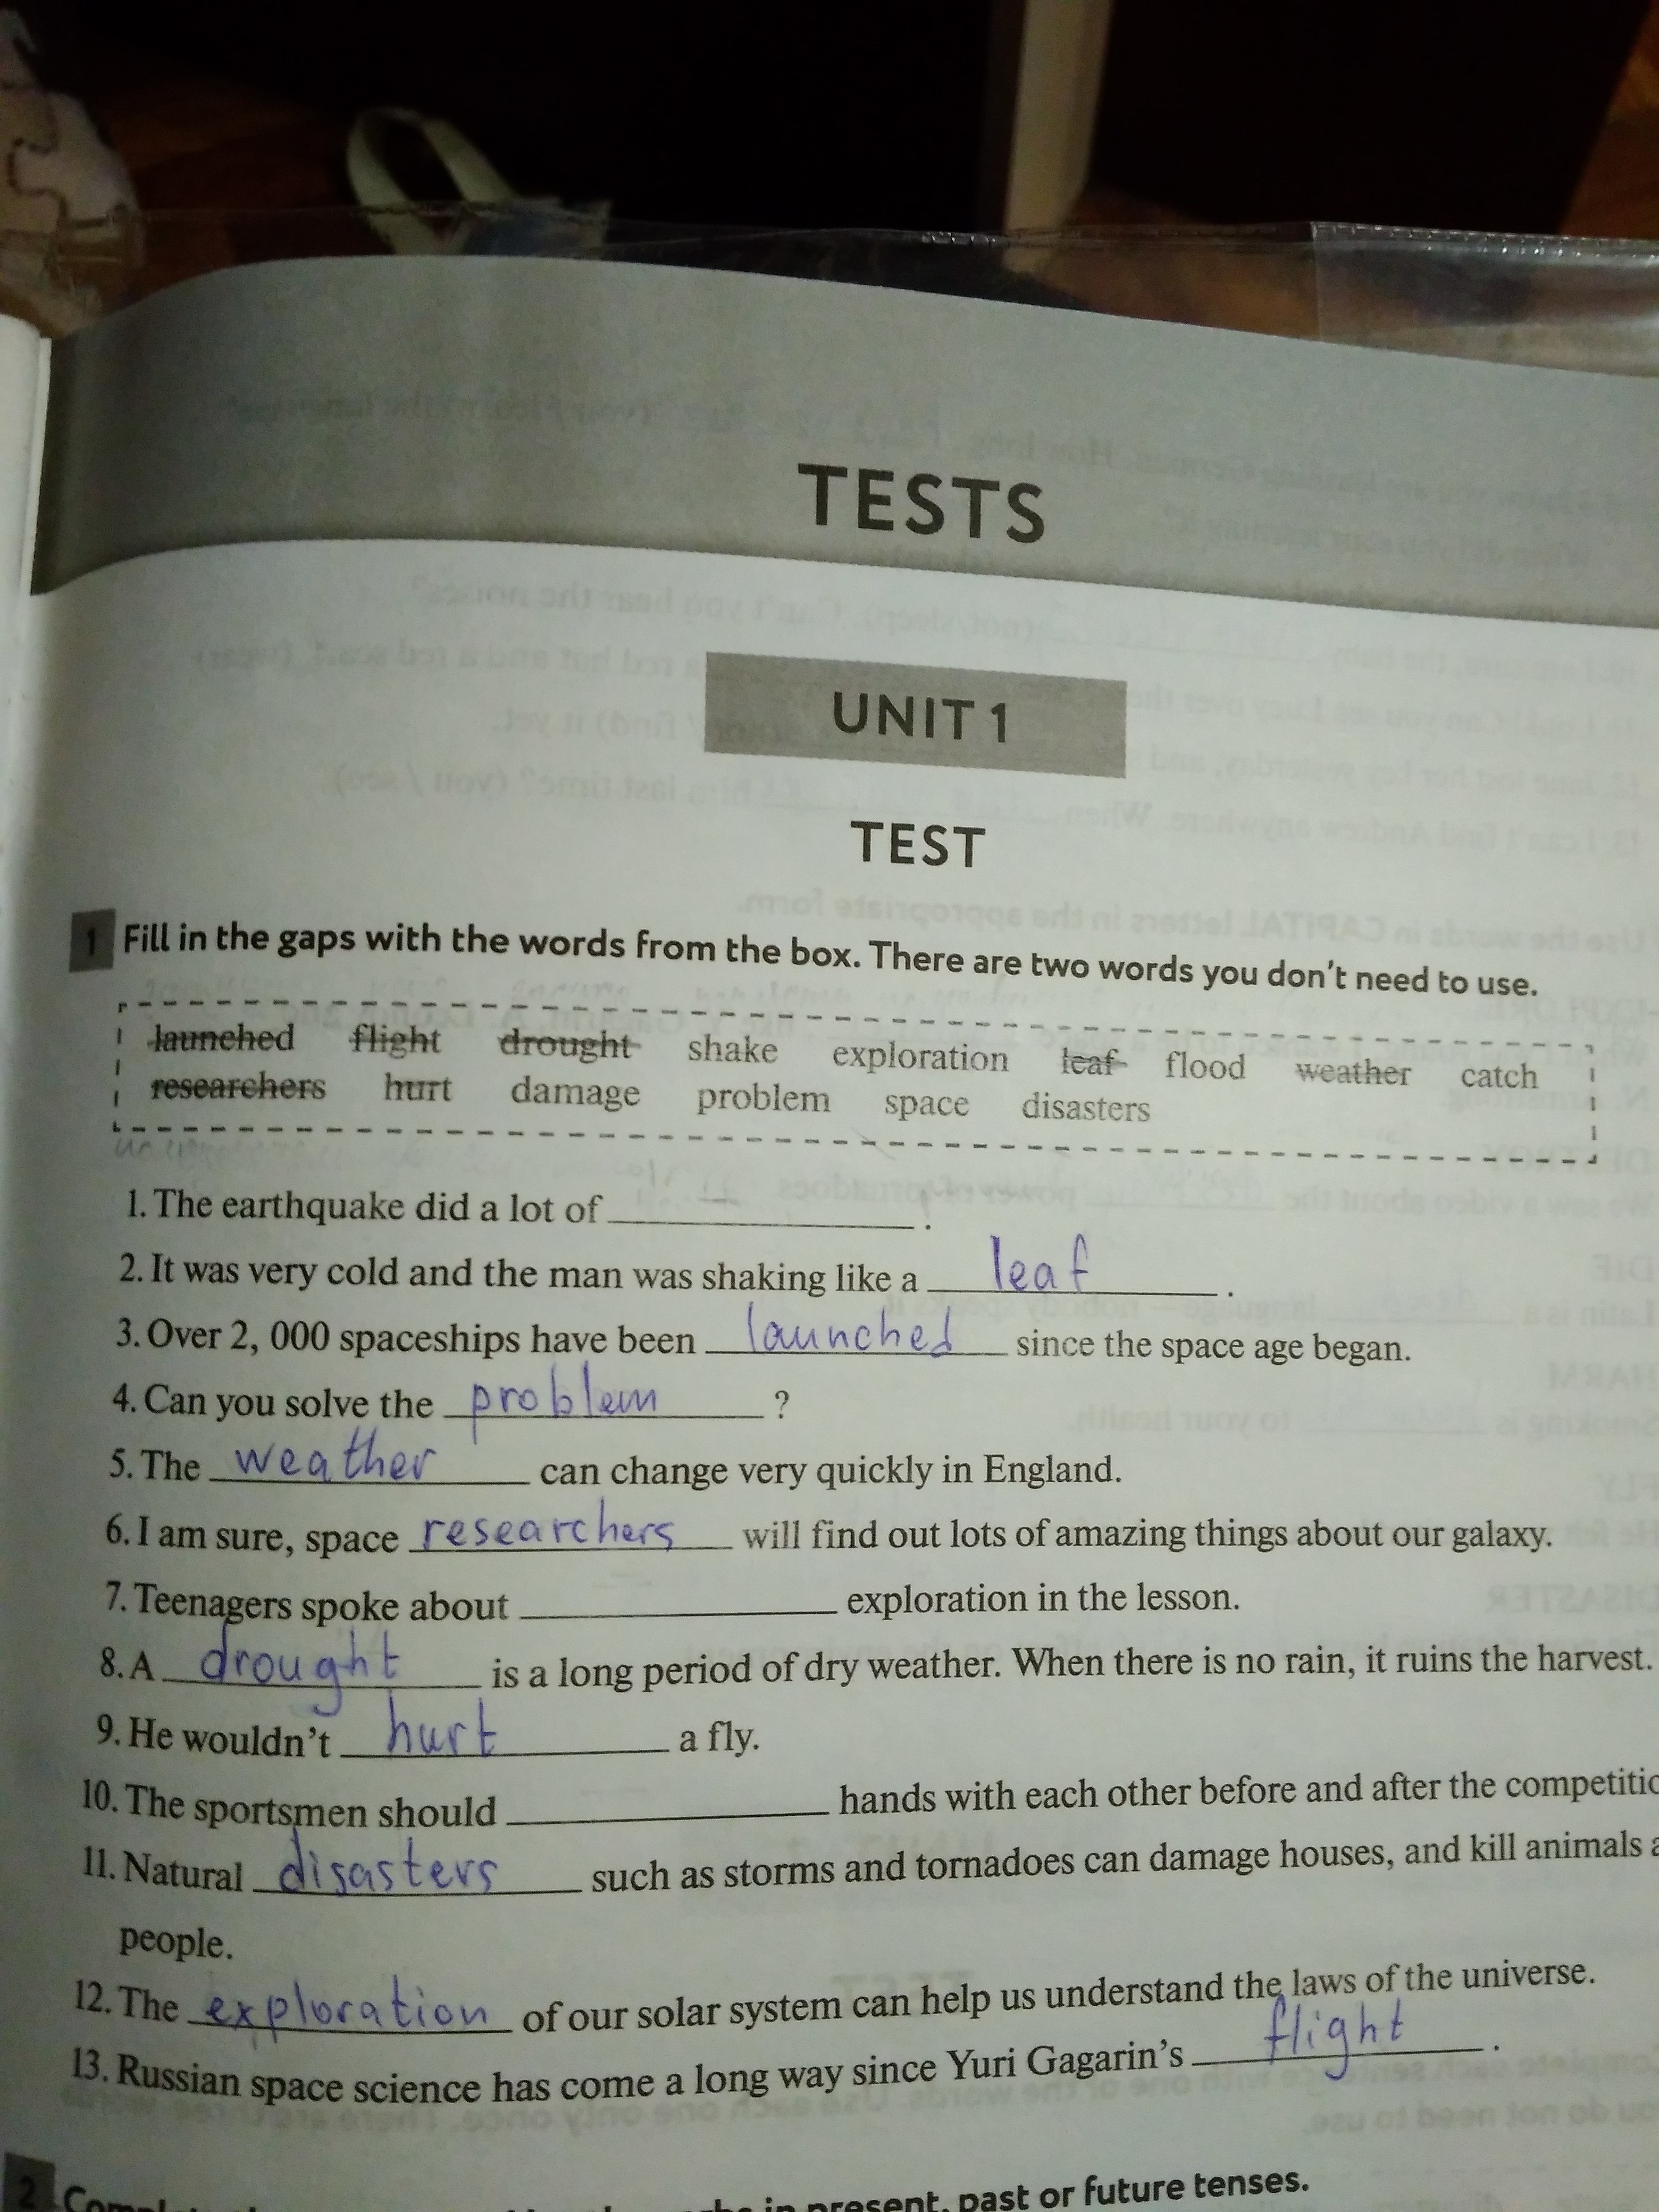 TESTS
UNIT 1
TEST
1 Fill in the gaps with the words from the box. There are two words you don't need to use.
launched flight drought shake exploration leaf flood weather catch
researchers hurt damage problem space disasters
1. The earthquake did a lot of ____________ .
2. It was very cold and the man was shaking like a leaf .
3. Over 2, 000 spaceships have been launched since the space age began.
4. Can you solve the problem ?
5. The weather can change very quickly in England.
6. I am sure, space researchers will find out lots of amazing things about our galaxy.
7. Teenagers spoke about ____________ exploration in the lesson.
8. A drought is a long period of dry weather. When there is no rain, it ruins the harvest.
9. He wouldn't hurt a fly.
10. The sportsmen should ____________ hands with each other before and after the
11. Natural disasters such as storms and tornadoes can damage houses, and kill animals
people.
12. The exploration of our solar system can help us understand the laws of the universe.
13. Russian space science has come a long way since Yuri Gagarin's flight .
2 in present, past or future tenses.